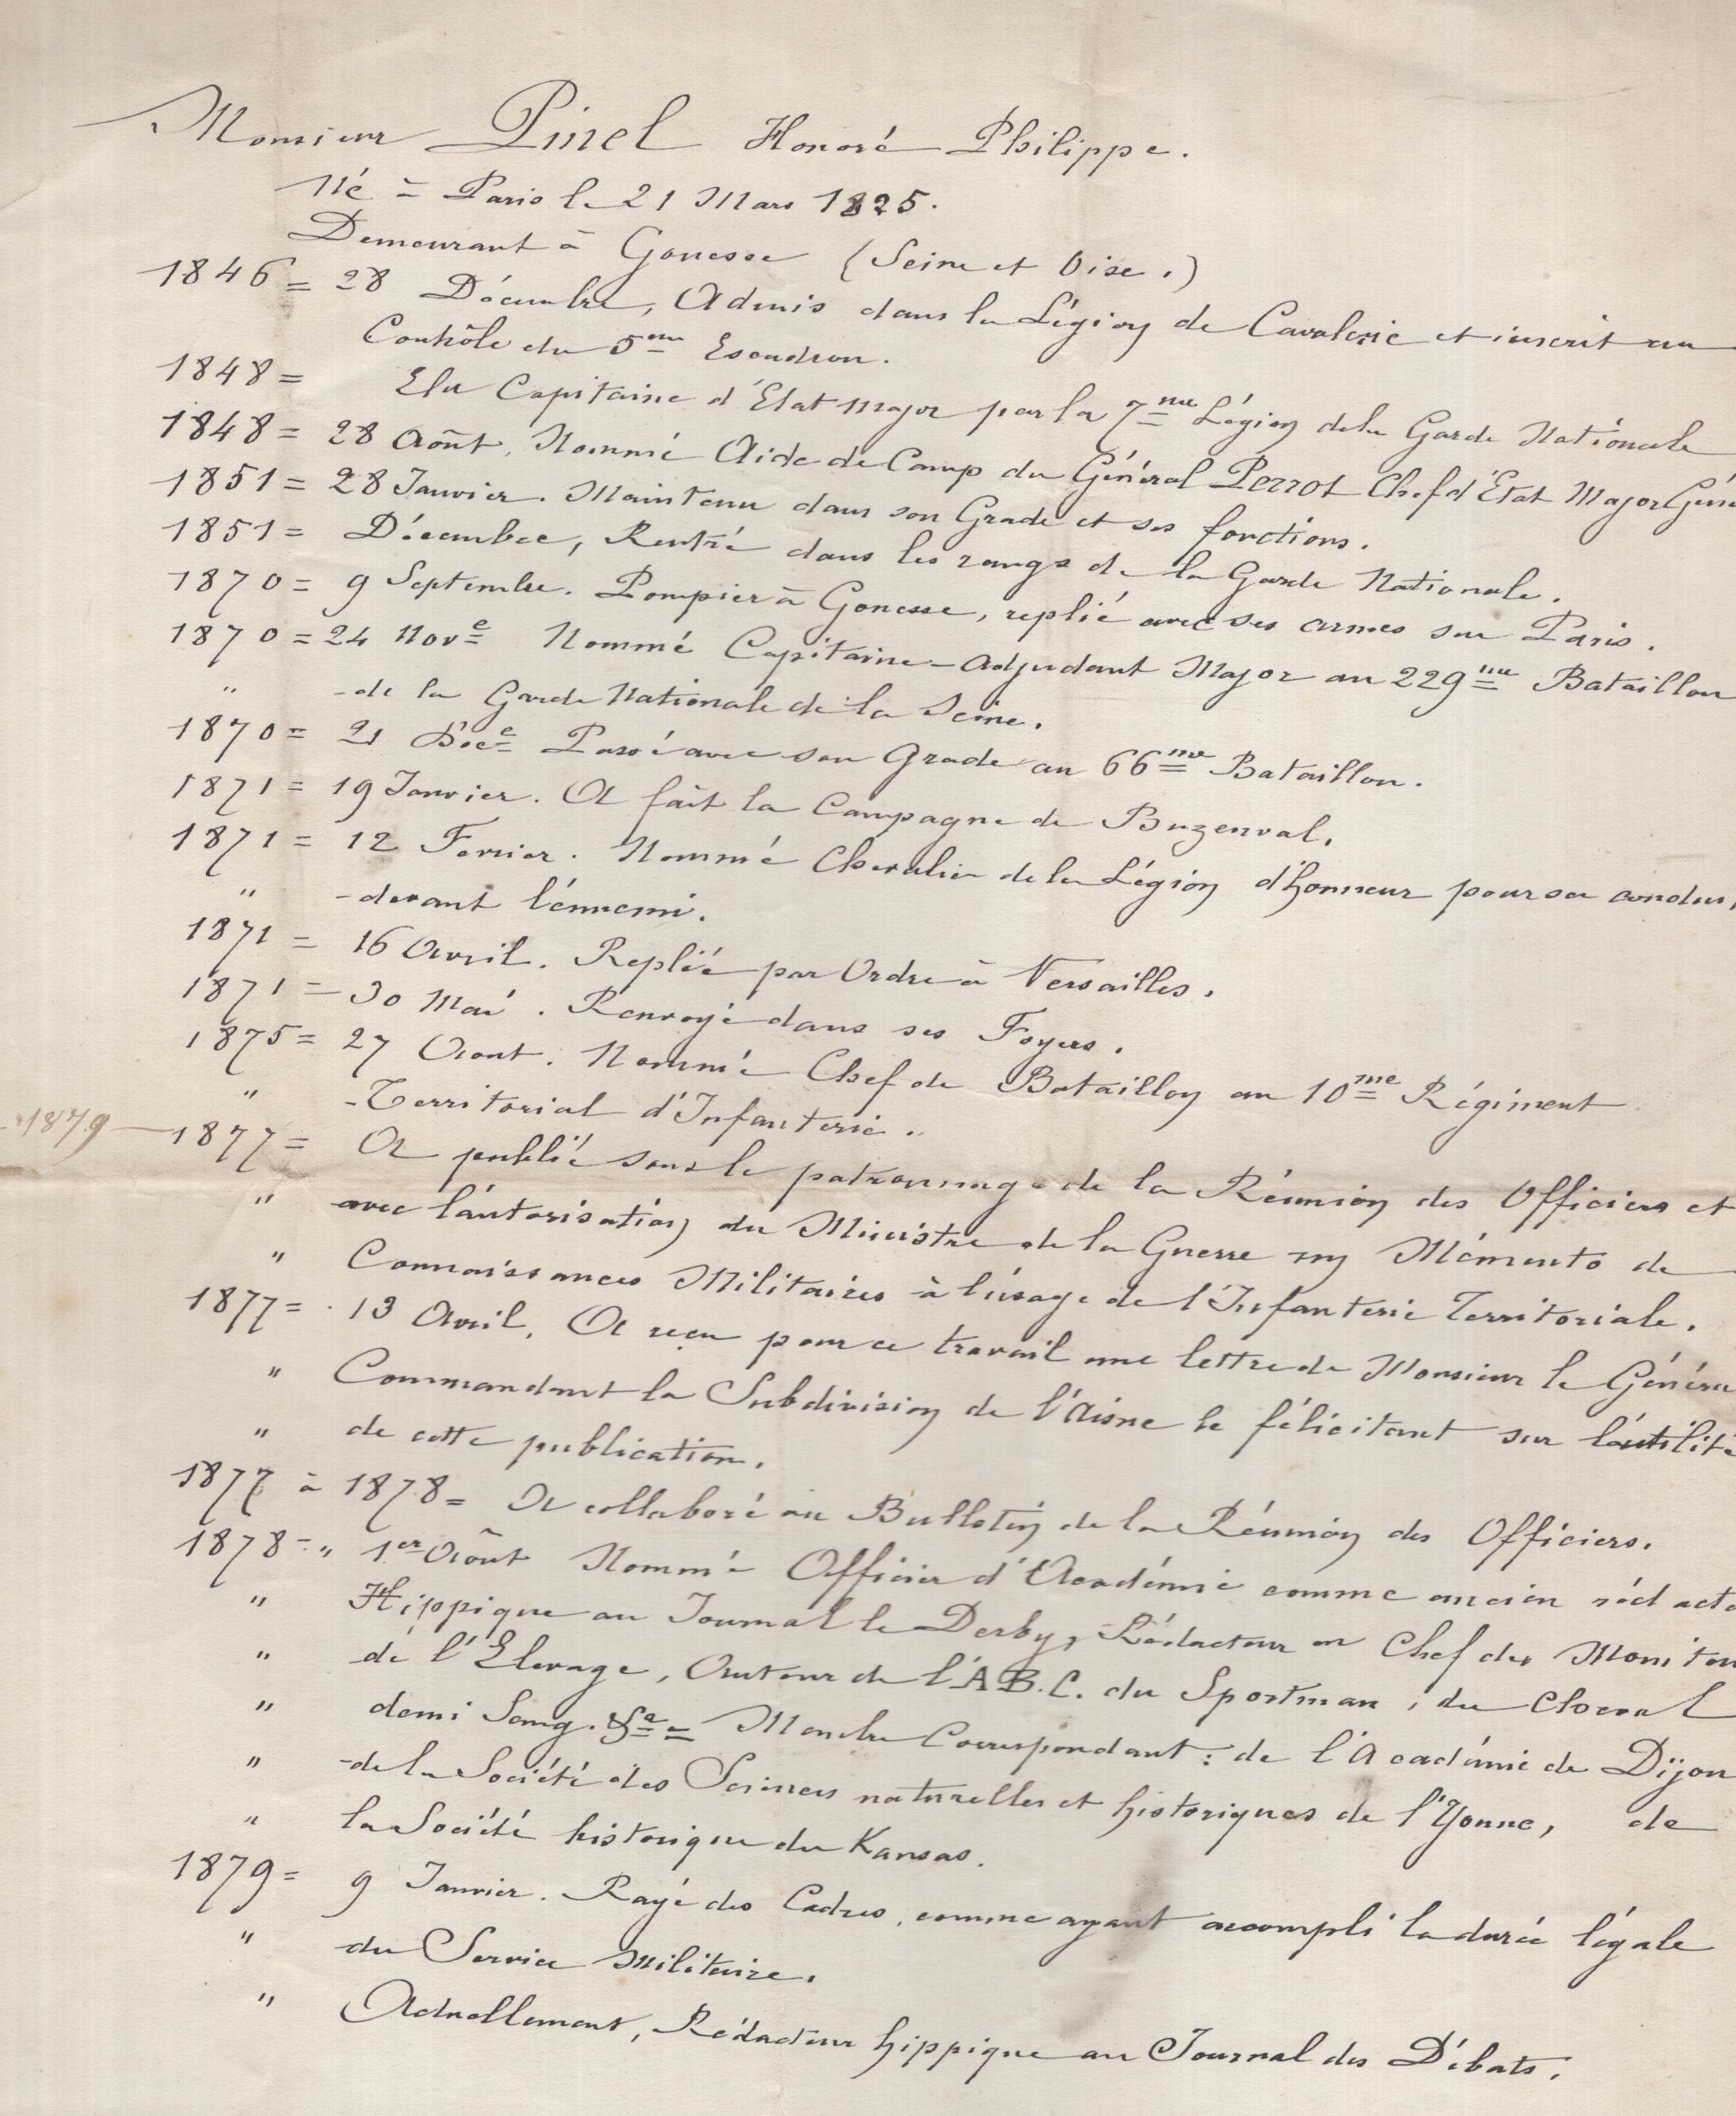 Monsieur Pinel Honoré Philippe.
Né à Paris le 21 Mars 1825.
Demeurant à Gonesse (Seine et Oise.)
1846 = 28 Décembre, Admis dans la Légion de Cavalerie et inscrit au
Contrôle du 5me Escadron.
1848 = Elu Capitaine d'Etat Major par la 7me Légion de la Garde Nationale
1848 = 28 Aoùt, Nommé Aide de Camp du Général Perrot Chef d'Etat Major Géné
1851 = 28 Janvier. Maintenu dans son Grade et ses fonctions.
1851 = Décembre, Rentré dans les rangs de la Garde Nationale.
1870 = 9 Septembre. Pompier à Gonesse, replié avec ses armes sur Paris.
1870 = 24 Nove Nommé Capitaine-Adjudant Major au 229me Bataillon
" -de la Garde Nationale de la Seine.
1870 = 21 Déce Passé avec son Grade au 66me Bataillon.
1871 = 19 Janvier. A fait la Campagne de Buzenval.
1871 = 12 Fevrier. Nommé Chevalier de la Légion d'honneur pour sa condui
" -devant l'ennemi.
1871 = 16 Avril. Replié par Ordre à Versailles.
1871 = 30 Mai. Renvoyé dans ses Foyers.
1875 = 27 Aout. Nommé Chef de Bataillon au 10me Régiment
" -Territorial d'Infanterie.
1879 — 1877 = A publié sous le patronnage de la Réunion des Officiers et
" avec l'autorisation du Ministre de la Guerre un Mémento de
" Connaissances Militaires à l'usage de l'Infanterie Territoriale.
1877 = 13 Avril. A reçu pour ce travail une lettre de Monsieur le Généra
" Commandant la Subdivision de l'Aisne le félicitant sur l'utilité
" de cette publication.
1877 à 1878 = A collaboré au Bulletin de la Réunion des Officiers.
1878 = " 1er Aoùt Nommé Officier d'Académie comme ancien rédacte
" Hippique au Journal le Derby, Rédacteur en Chef du Moniteu
" de l'Elevage, Auteur de l'A.B.C. du Sportman, du Cheval
" demi Sang. &a = Membre Correspondant: de l'Académie de Dijon
" -de la Société des Sciences naturelles et historiques de l'Yonne, de
" la Société historique du Kansas.
1879 = 9 Janvier. Rayé des Cadres, comme ayant accompli la durée légale
" du Service Militaire.
" Actuellement, Rédacteur hippique au Journal des Débats.